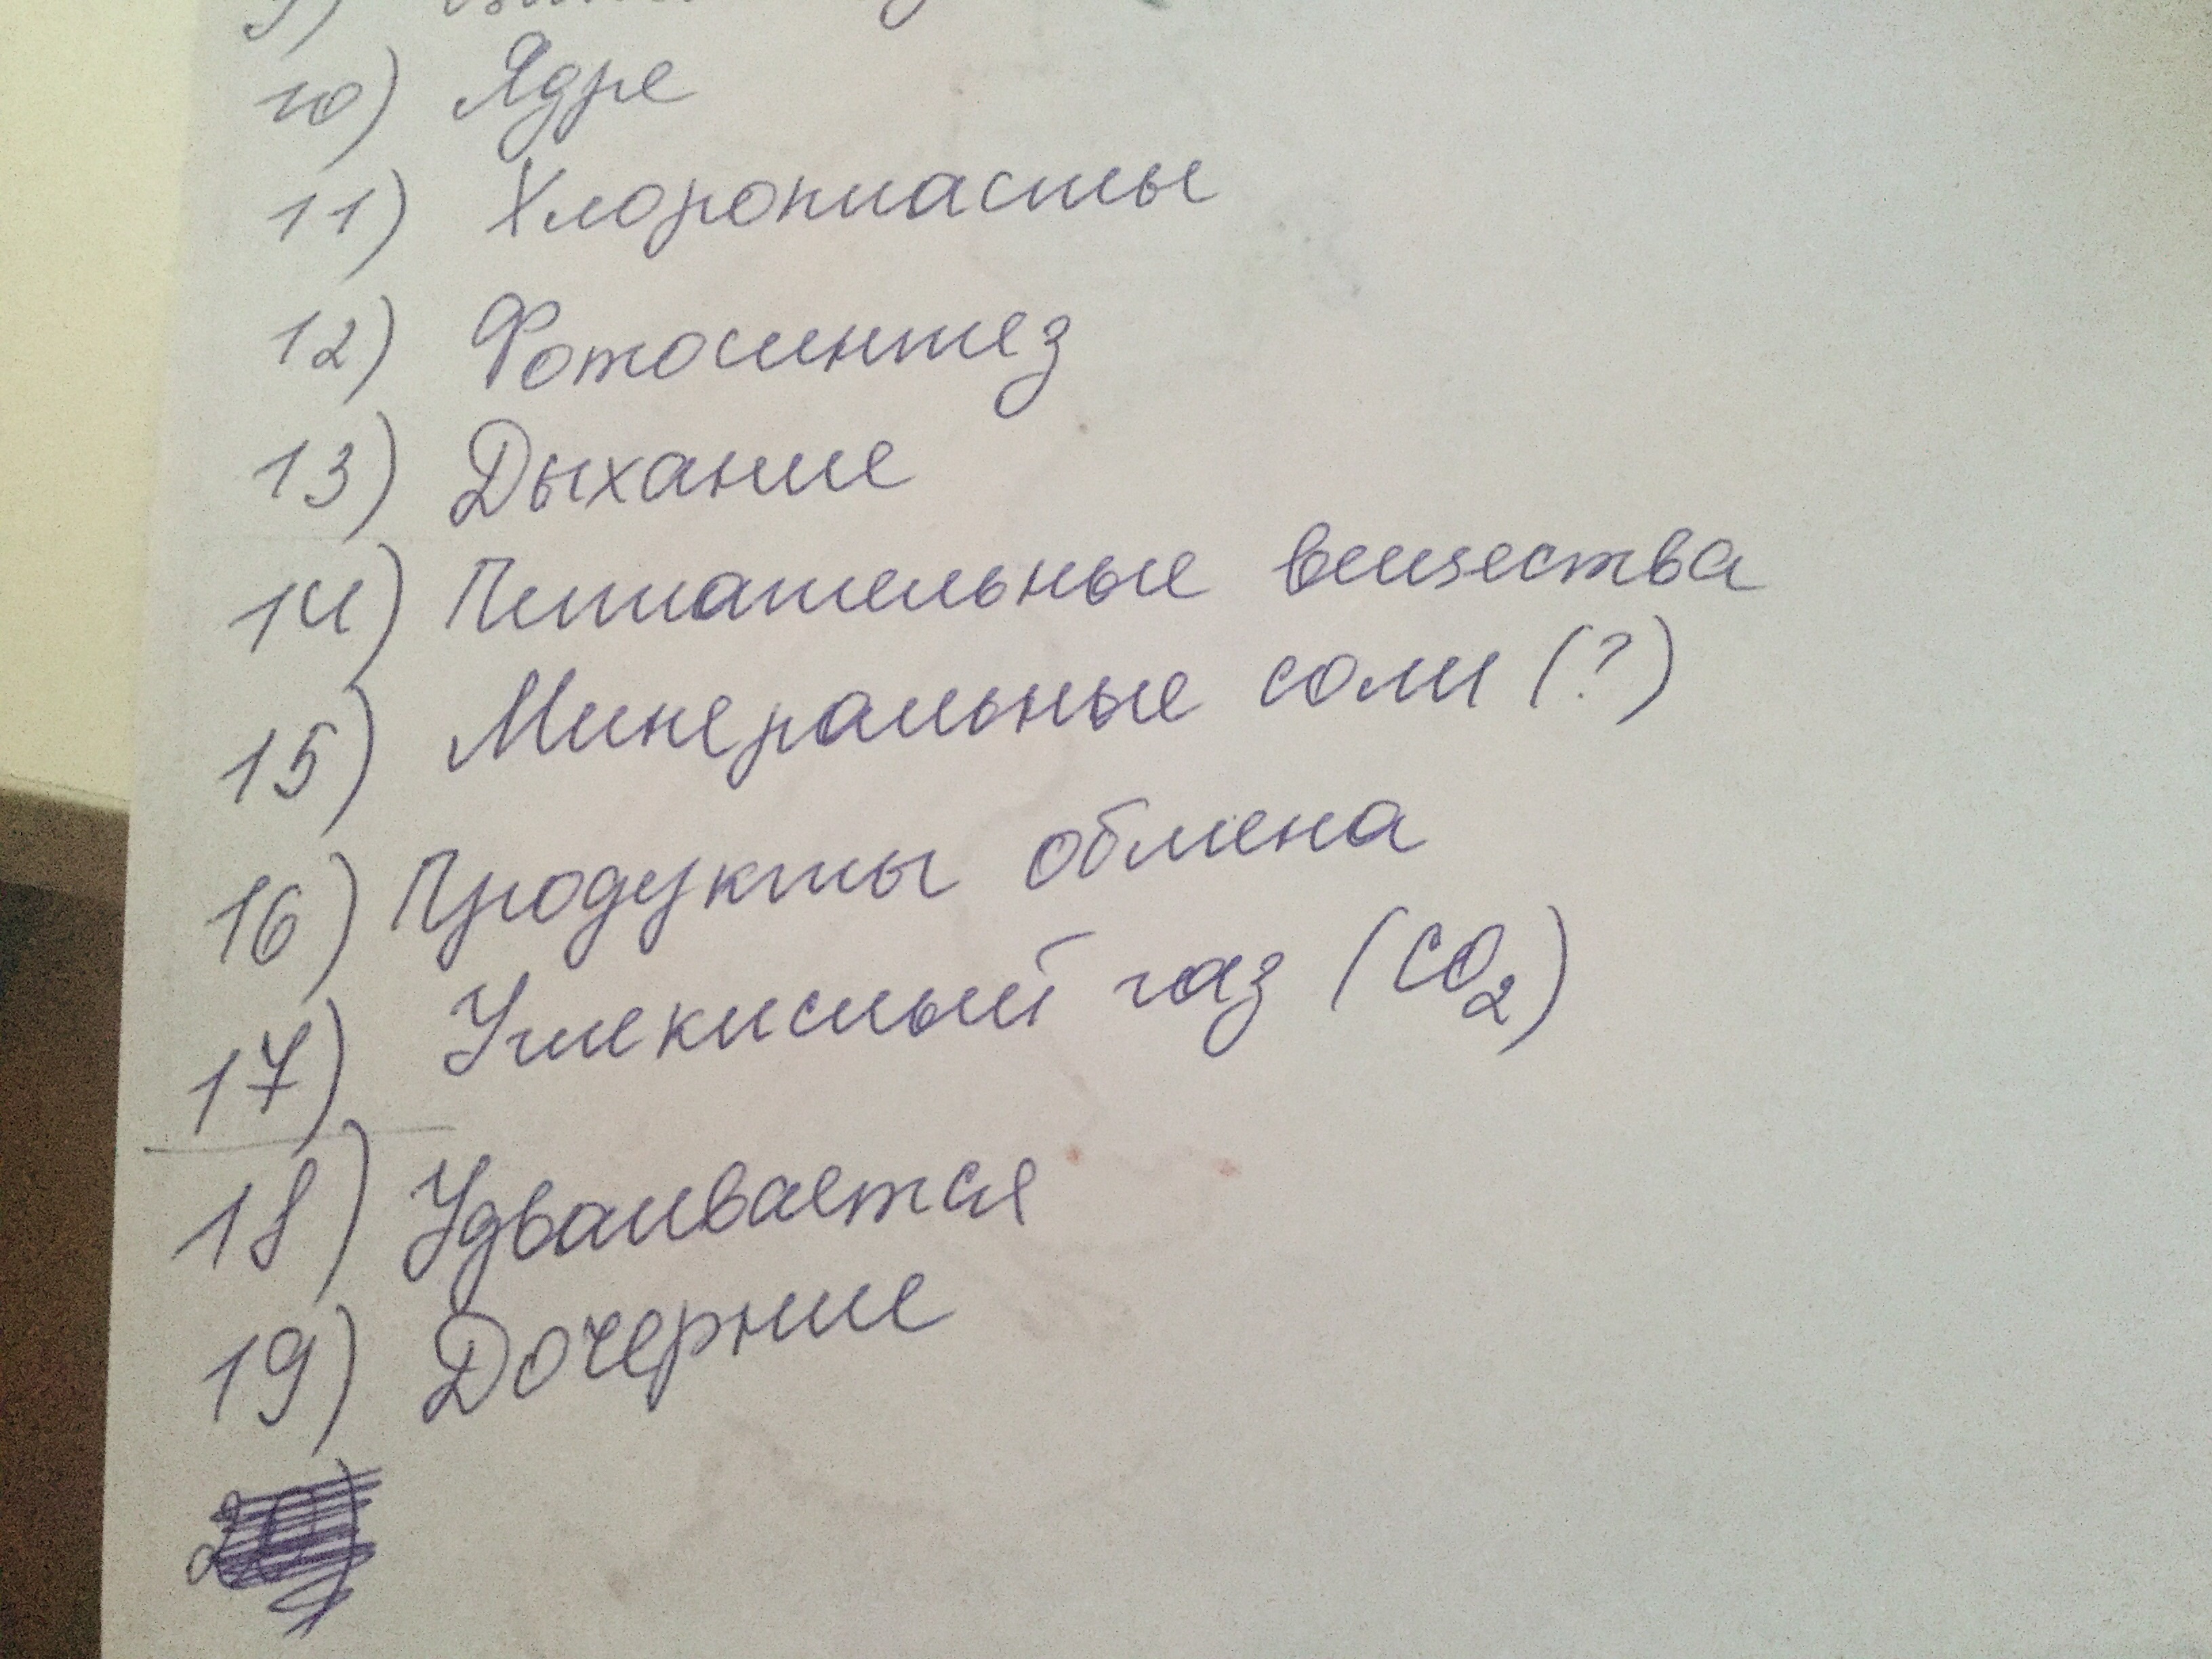 9)
10) Ядре
11) Хлоропласты
12) Фотосинтез
13) Дыхание
14) Питательные вещества
15) Минеральные соли (?)
16) Продукты обмена
17) Углекислый газ (CO₂)
18) Удваивается
19) Дочерние
20)